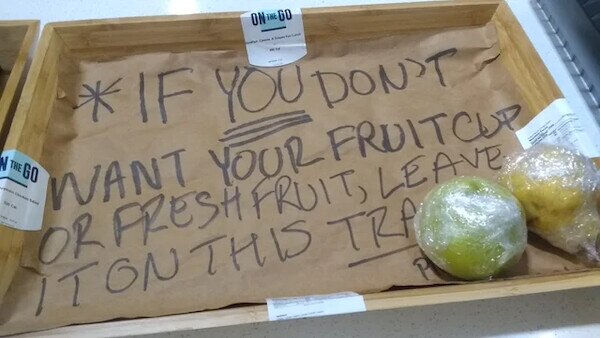 ON THE GO
N THE GO
* IF YOU DON'T
WANT YOUR FRUIT CUP
OR FRESH FRUIT, LEAVE
IT ON THIS TRA